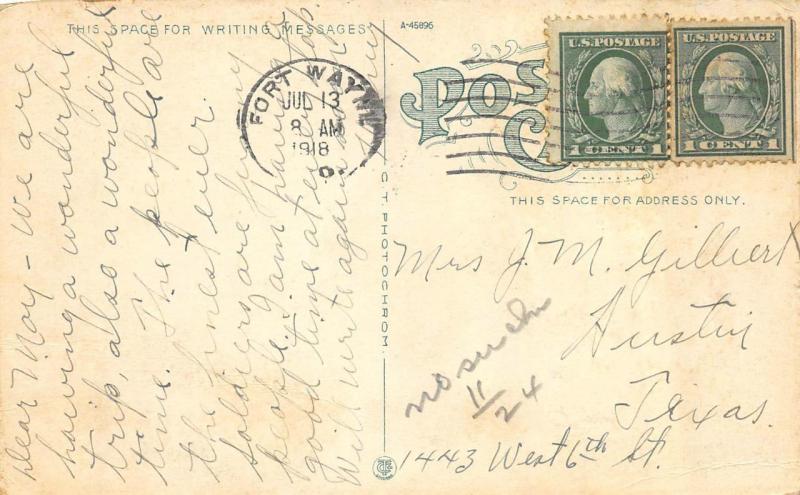 THIS SPACE FOR WRITING MESSAGES
A-45896
POST CA
Dear May - We are
having a wonderful
trip, also a wonderful
time. The people are
the finest ever.
soldiers are fun
people. I am having a
good time at
Will write again
FORT WAYNE
JUL 13
8 AM
1918
U.S. POSTAGE
1 CENT 1
U.S. POSTAGE
1 CENT 1
THIS SPACE FOR ADDRESS ONLY.
C. T. PHOTOCHROM
Mrs J. M. Gilbert
Austin
Texas.
1443 West 6th St.
no such
11/24